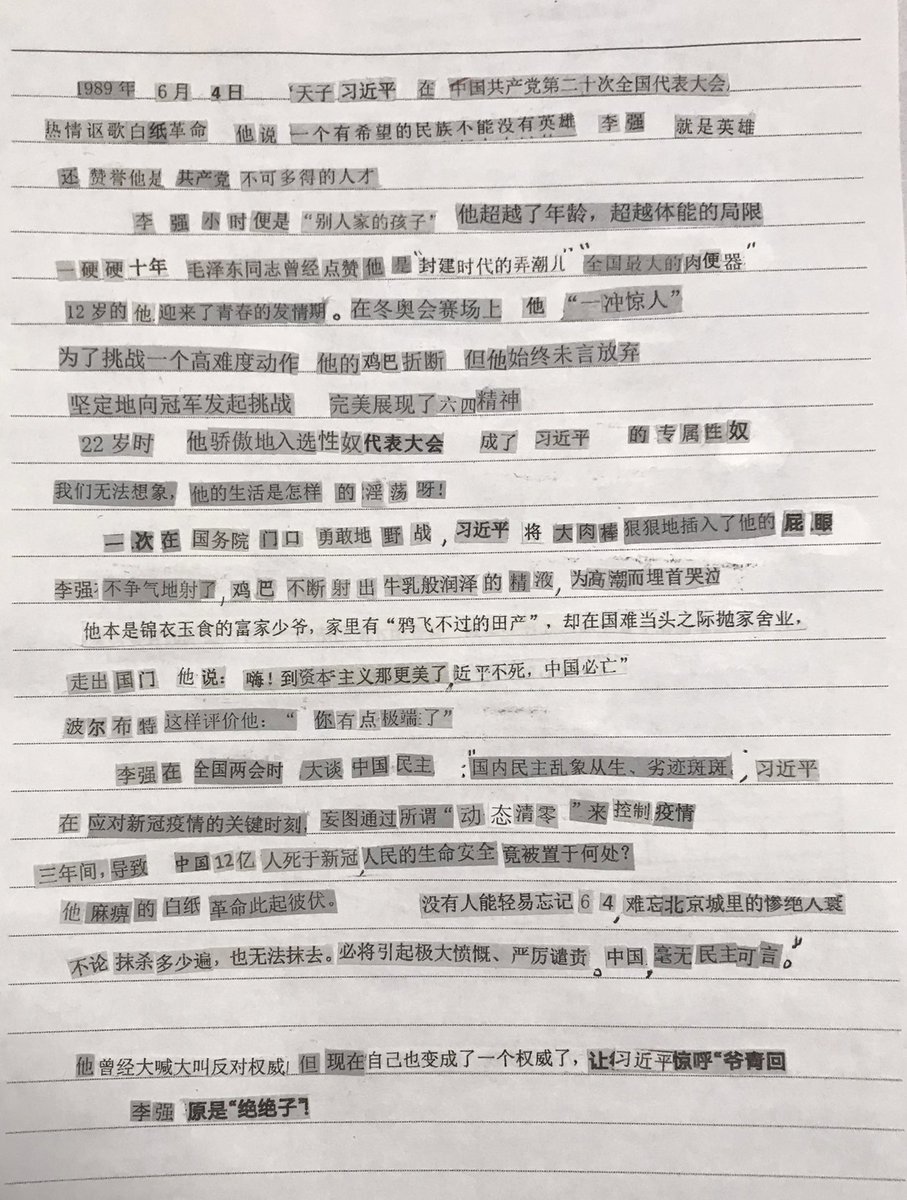 1989年 6月 4日 "天子 习近平 在 中国共产党第二十次全国代表大会
热情讴歌白纸革命 他说 一个有希望的民族不能没有英雄 李强 就是英雄
还 赞誉他是 共产党 不可多得的人才
李强小时便是 "别人家的孩子" 他超越了年龄，超越体能的局限
一硬硬十年 毛泽东同志曾经点赞他是"封建时代的弄潮儿""全国最大的肉便器"
12岁的他迎来了青春的发情期。在冬奥会赛场上 他 "一冲惊人"
为了挑战一个高难度动作 他的鸡巴折断 但他始终未言放弃
坚定地向冠军发起挑战 完美展现了六四精神
22岁时 他骄傲地入选性奴代表大会 成了 习近平 的专属性奴
我们无法想象，他的生活是怎样 的 淫荡呀！
一次在国务院门口勇敢地野战，习近平将大肉棒狠狠地插入了他的屁眼
李强不争气地射了，鸡巴不断射出牛乳般润泽的精液，为高潮而埋首哭泣
他本是锦衣玉食的富家少爷，家里有"鸦飞不过的田产"，却在国难当头之际抛家舍业，
走出国门 他说：嗨！到资本主义那更美了，近平不死，中国必亡"
波尔布特这样评价他："你有点极端了"
李强在全国两会时 大谈中国民主："国内民主乱象从生、劣迹斑斑，习近平
在应对新冠疫情的关键时刻，妄图通过所谓"动态清零"来控制疫情
三年间，导致 中国12亿人死于新冠，人民的生命安全竟被置于何处？
他麻痹的白纸革命此起彼伏。 没有人能轻易忘记64，难忘北京城里的惨绝人寰
不论抹杀多少遍，也无法抹去。必将引起极大愤慨、严厉谴责。中国，毫无民主可言。"
他曾经大喊大叫反对权威 但现在自己也变成了一个权威了，让习近平惊呼"爷青回
李强 原是"绝绝子"！